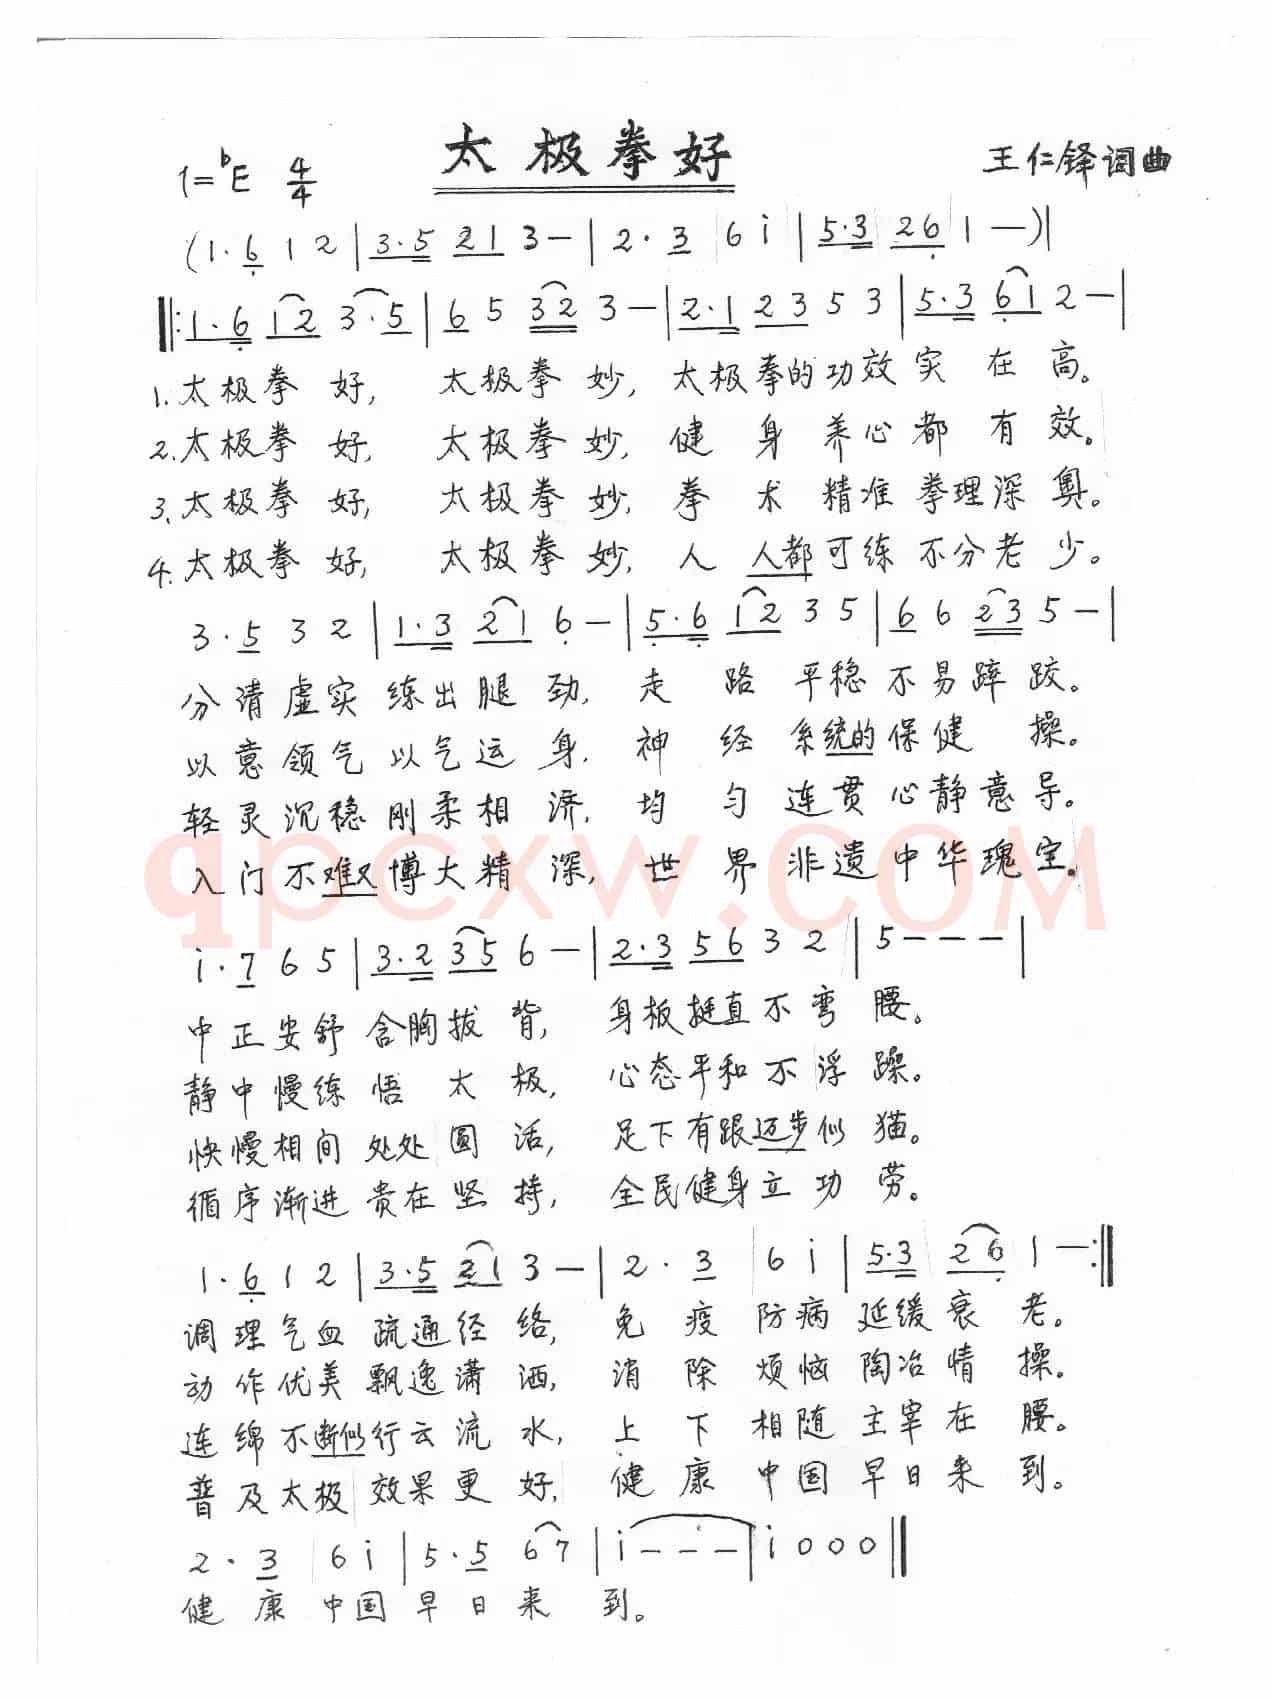 太极拳好
1=♭E 4/4
王仁铎词曲
(1·6 1 2 | 3·5 21 3 — | 2·3 6 i | 5·3 26 1 —)|
‖:1·6 12 3·5 | 6 5 32 3 — | 2·1 23 5 3 | 5·3 61 2 — |
1.太极拳好,太极拳妙,太极拳的功效实在高。
2.太极拳好,太极拳妙,健身养心都有效。
3.太极拳好,太极拳妙,拳术精准拳理深奥。
4.太极拳好,太极拳妙,人人都可练不分老少。
3·5 3 2 | 1·3 21 6 — | 5·6 12 3 5 | 6 6 23 5 — |
分清虚实练出腿劲,走路平稳不易跸跤。
以意领气以气运身,神经系统的保健操。
轻灵沉稳刚柔相济,均匀连贯心静意导。
入门不难又博大精深,世界非遗中华瑰宝。
qpcxw.COM
i·7 6 5 | 3·2 35 6 — | 2·3 56 3 2 | 5 — — — |
中正安舒含胸拔背,身板挺直不弯腰。
静中慢练悟太极,心态平和不浮躁。
快慢相间处处圆活,足下有跟迈步似猫。
循序渐进贵在坚持,全民健身立功劳。
1·6 1 2 | 3·5 21 3 — | 2·3 6 i | 5·3 26 1 —:‖
调理气血疏通经络,免疫防病延缓衰老。
动作优美飘逸潇洒,消除烦恼陶冶情操。
连绵不断似行云流水,上下相随主宰在腰。
普及太极效果更好,健康中国早日来到。
2·3 6 i | 5·5 67 | i — — — | i 0 0 0 ‖
健康中国早日来到。